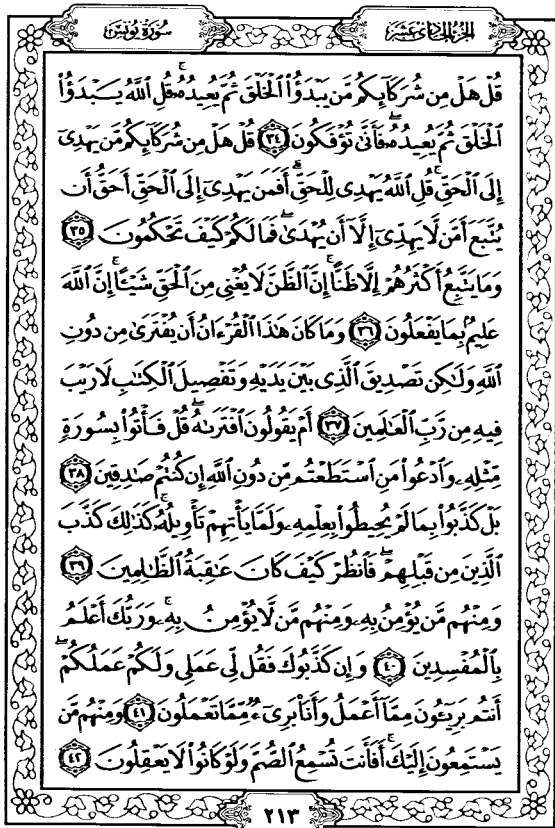 سُورَةُ يُونُسَ
الجُزْءُ الحَادِي عَشَرَ
قُلْ هَلْ مِن شُرَكَآئِكُم مَّن يَبْدَؤُا۟ ٱلْخَلْقَ ثُمَّ يُعِيدُهُۥ ۚ قُلِ ٱللَّهُ يَبْدَؤُا۟
ٱلْخَلْقَ ثُمَّ يُعِيدُهُۥ ۖ فَأَنَّىٰ تُؤْفَكُونَ ٣٤ قُلْ هَلْ مِن شُرَكَآئِكُم مَّن يَهْدِىٓ
إِلَى ٱلْحَقِّ ۚ قُلِ ٱللَّهُ يَهْدِى لِلْحَقِّ ۗ أَفَمَن يَهْدِىٓ إِلَى ٱلْحَقِّ أَحَقُّ أَن
يُتَّبَعَ أَمَّن لَّا يَهِدِّىٓ إِلَّآ أَن يُهْدَىٰ ۖ فَمَا لَكُمْ كَيْفَ تَحْكُمُونَ ٣٥
وَمَا يَتَّبِعُ أَكْثَرُهُمْ إِلَّا ظَنًّا ۚ إِنَّ ٱلظَّنَّ لَا يُغْنِى مِنَ ٱلْحَقِّ شَيْـًٔا ۚ إِنَّ ٱللَّهَ
عَلِيمٌۢ بِمَا يَفْعَلُونَ ٣٦ وَمَا كَانَ هَـٰذَا ٱلْقُرْءَانُ أَن يُفْتَرَىٰ مِن دُونِ
ٱللَّهِ وَلَـٰكِن تَصْدِيقَ ٱلَّذِى بَيْنَ يَدَيْهِ وَتَفْصِيلَ ٱلْكِتَـٰبِ لَا رَيْبَ
فِيهِ مِن رَّبِّ ٱلْعَـٰلَمِينَ ٣٧ أَمْ يَقُولُونَ ٱفْتَرَىٰهُ ۖ قُلْ فَأْتُوا۟ بِسُورَةٍ
مِّثْلِهِۦ وَٱدْعُوا۟ مَنِ ٱسْتَطَعْتُم مِّن دُونِ ٱللَّهِ إِن كُنتُمْ صَـٰدِقِينَ ٣٨
بَلْ كَذَّبُوا۟ بِمَا لَمْ يُحِيطُوا۟ بِعِلْمِهِۦ وَلَمَّا يَأْتِهِمْ تَأْوِيلُهُۥ ۚ كَذَٰلِكَ كَذَّبَ
ٱلَّذِينَ مِن قَبْلِهِمْ ۖ فَٱنظُرْ كَيْفَ كَانَ عَـٰقِبَةُ ٱلظَّـٰلِمِينَ ٣٩
وَمِنْهُم مَّن يُؤْمِنُ بِهِۦ وَمِنْهُم مَّن لَّا يُؤْمِنُ بِهِۦ ۚ وَرَبُّكَ أَعْلَمُ
بِٱلْمُفْسِدِينَ ٤٠ وَإِن كَذَّبُوكَ فَقُل لِّى عَمَلِى وَلَكُمْ عَمَلُكُمْ ۖ
أَنتُم بَرِيٓـُٔونَ مِمَّآ أَعْمَلُ وَأَنَا۠ بَرِىٓءٌ مِّمَّا تَعْمَلُونَ ٤١ وَمِنْهُم مَّن
يَسْتَمِعُونَ إِلَيْكَ ۚ أَفَأَنتَ تُسْمِعُ ٱلصُّمَّ وَلَوْ كَانُوا۟ لَا يَعْقِلُونَ ٤٢
٢١٣